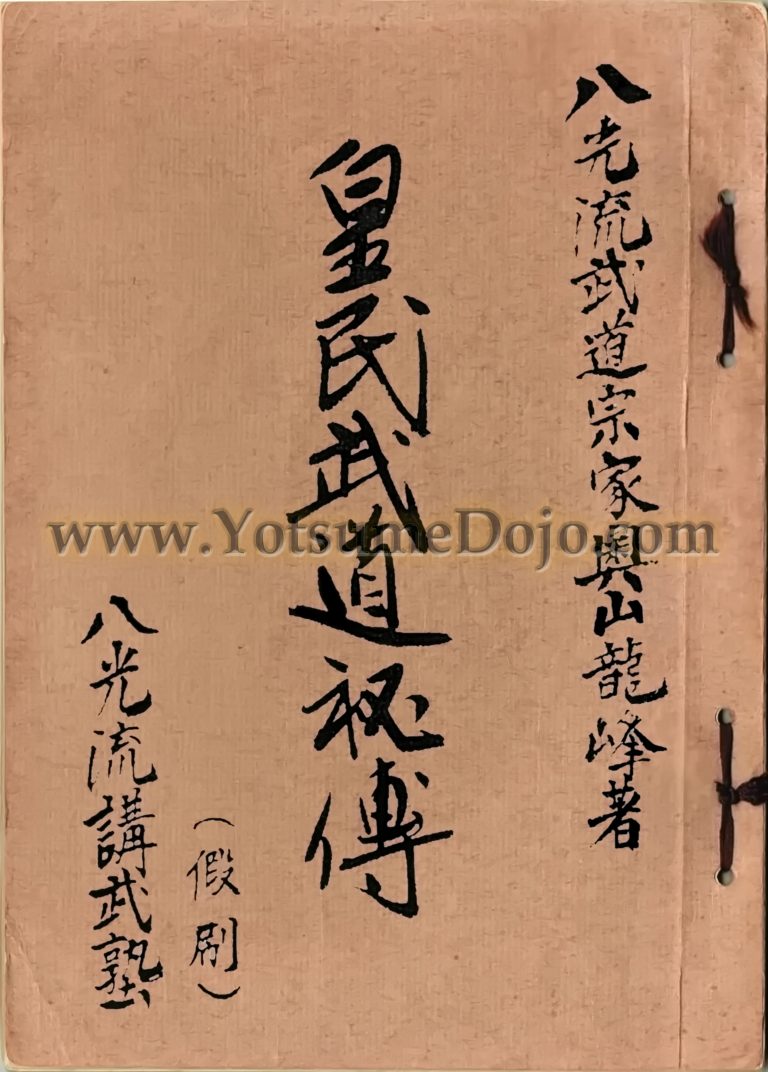 八光流武道宗家奥山龍峰著
皇民武道祕傳
(假刷)
八光流講武塾
www.YotsumeDojo.com